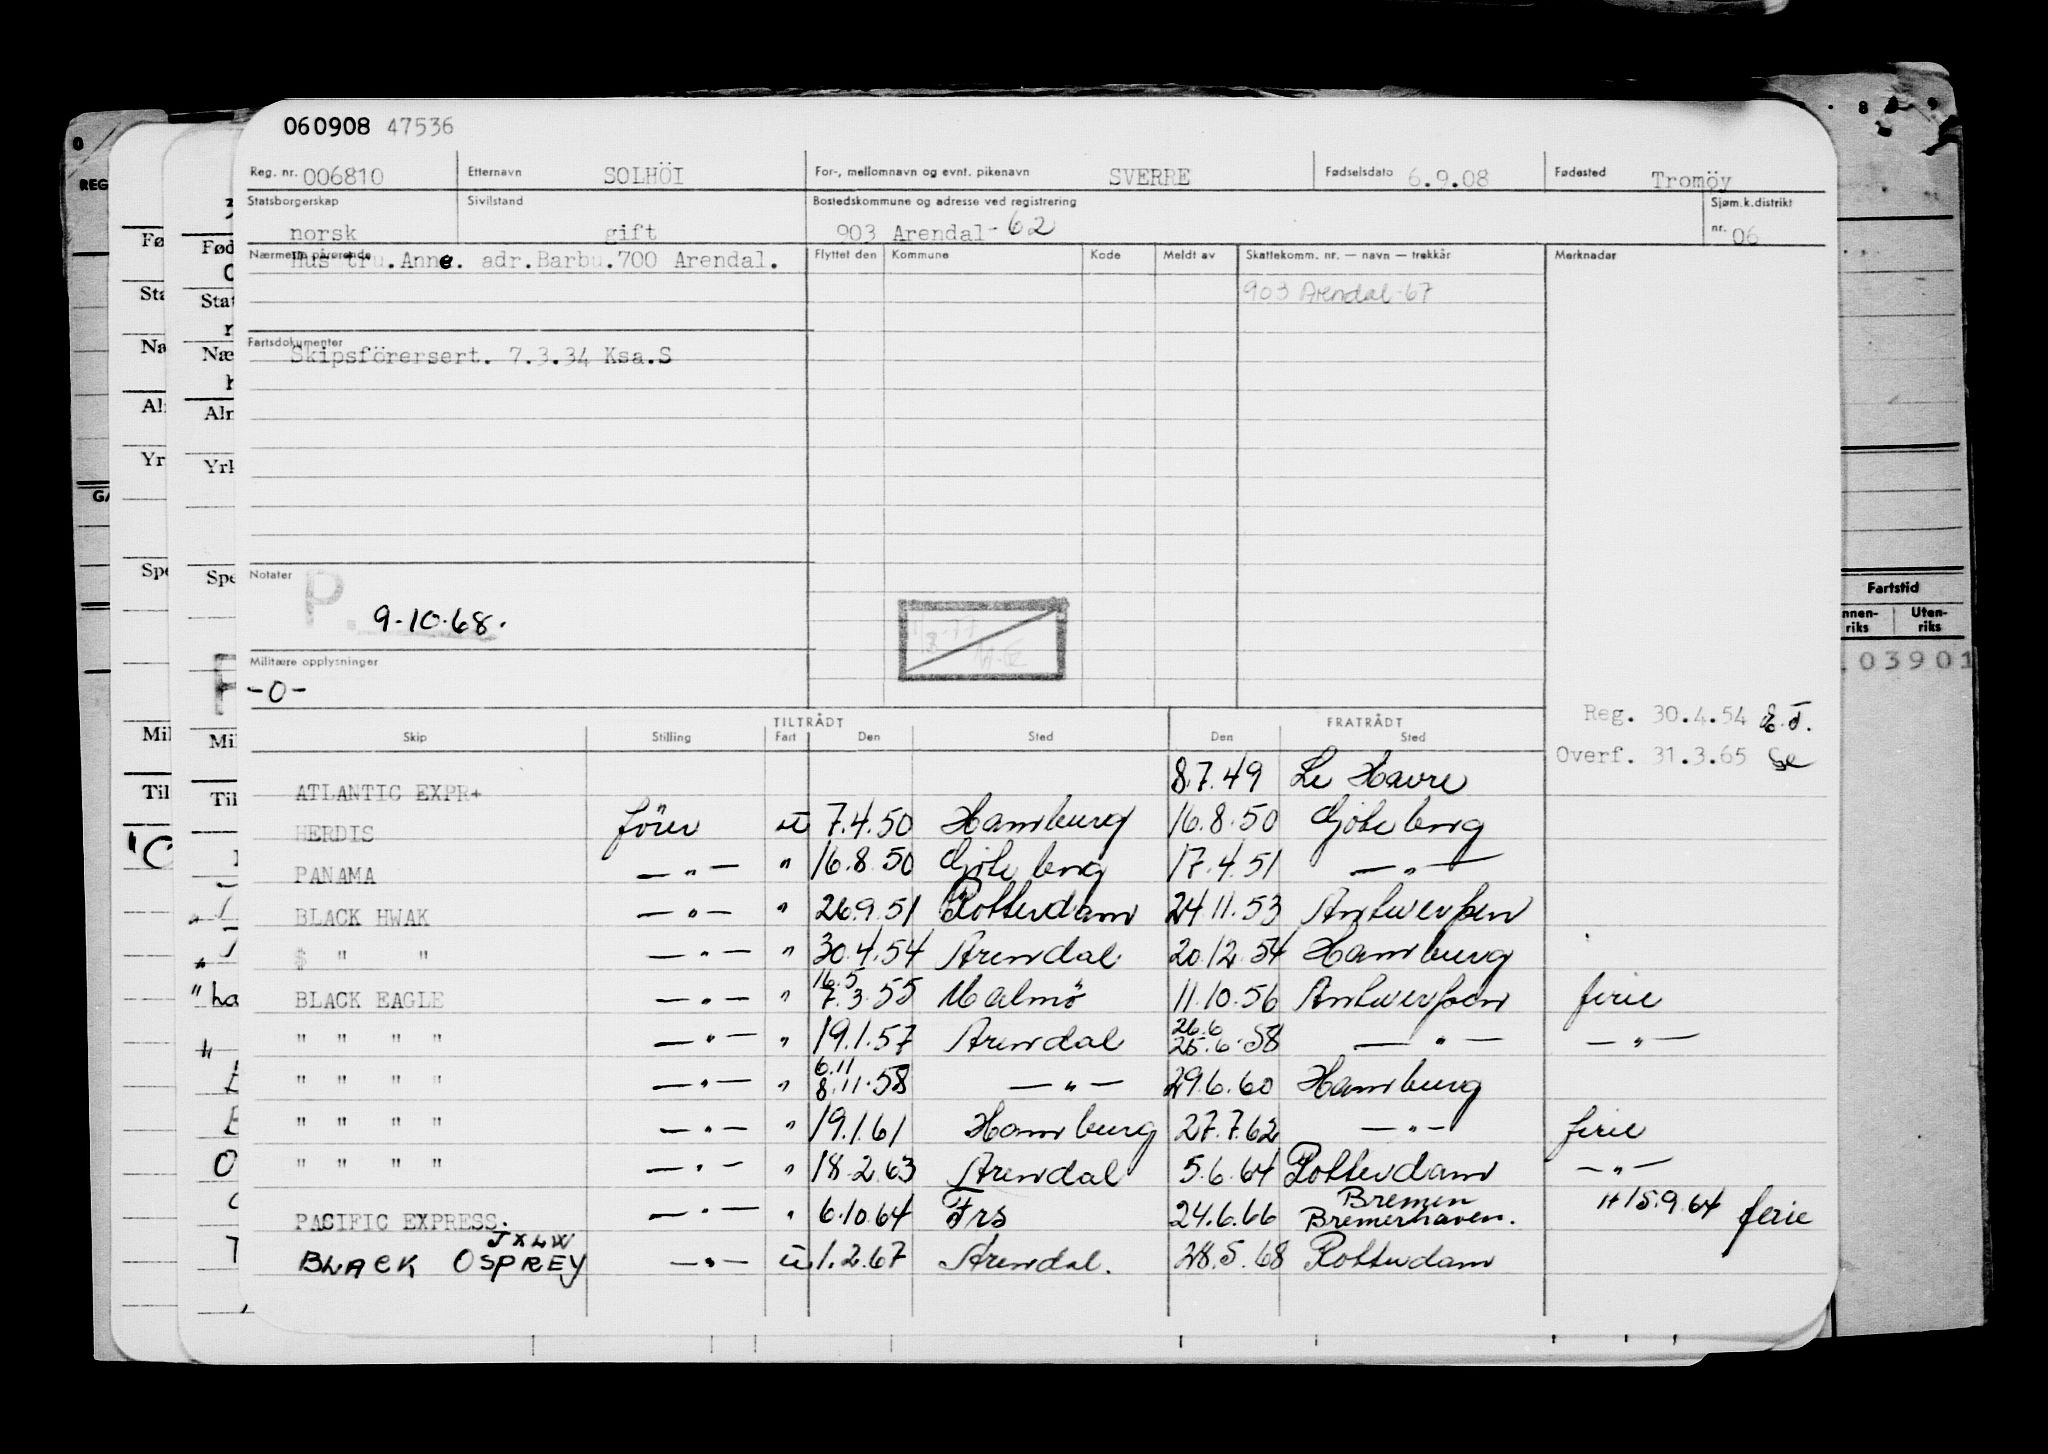 060908 47536
Reg. nr. 006810 Etternavn SOLHÖI For-, mellomnavn og evnt. pikenavn SVERRE Fødselsdato 6.9.08 Fødested Tromöy
Statsborgerskap Sivilstand Bostedskommune og adresse ved registrering Sjøm.k.distrikt
norsk gift 903 Arendal-62 nr. 06
Nærmeste pårørende Flyttet den Kommune Kode Meldt av Skattekomm. nr. — navn — trekkår Merknader
Hustru. Anne. adr. Barbu. 700 Arendal.
903 Arendal-67
Fartsdokumenter
Skipsförersert. 7.3.34 Ksa.S
Notater
P.
9-10-68.
Militære opplysninger
-0-
Reg. 30.4.54 E.T.
Overf. 31.3.65
TILTRÅDT FRATRÅDT
Skip Stilling Fart Den Sted Den Sted
ATLANTIC EXPR+ 8.7.49 Le Havre
HERDIS förer u 7.4.50 Hamburg 16.8.50 Gjøteberg
PANAMA —"— " 16.8.50 Gjøteberg 17.4.51 —"—
BLACK HWAK —"— " 26.9.51 Rotterdam 24.11.53 Antwerpen
$ " " —"— " 30.4.54 Arendal 20.12.54 Hamburg
16.5
BLACK EAGLE —"— " 7.3.55 Malmö 11.10.56 Antwerpen ferie
26.6
" " " " —"— " 19.1.57 Arendal 25.6.58 —"— —"—
6.11
" " " " —"— " 8.11.58 —"— 29.6.60 Hamburg
" " " " —"— " 19.1.61 Hamburg 27.7.62 —"— ferie
" " " " —"— " 18.2.63 Arendal 5.6.64 Rotterdam —"—
Bremen
PACIFIC EXPRESS. —"— " 6.10.64 Frs 24.6.66 Bremerhaven. 15.9.64 ferie
JXLW
BLACK OSPREY —"— u 1.2.67 Arendal. 28.5.68 Rotterdam
Fartstid
Uten-
riks riks
03901